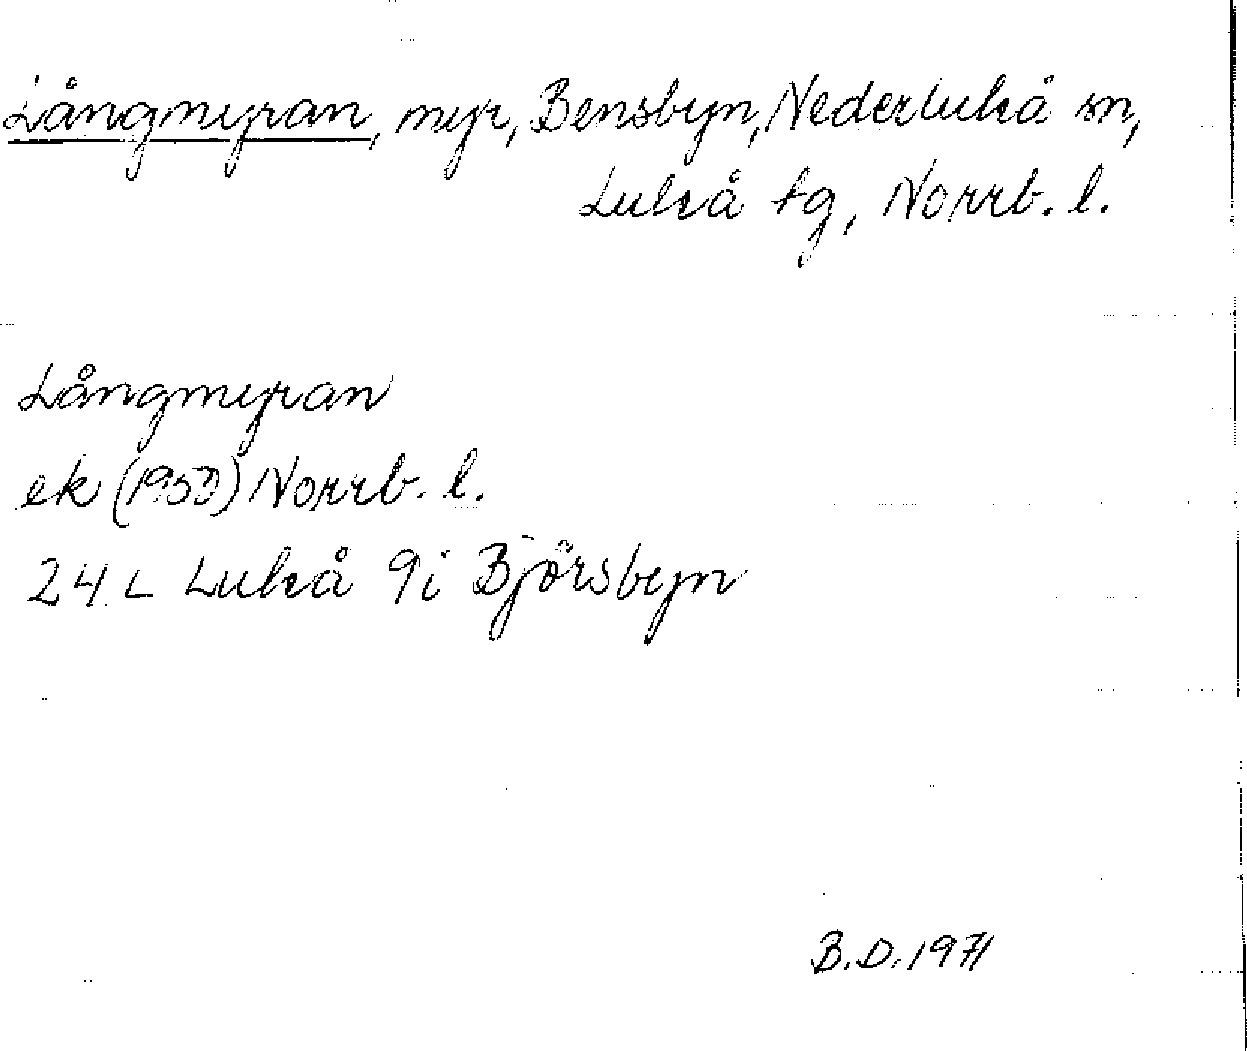 Långmyran, myr, Bensbyn, Nederluleå sn,
Luleå tg, Norrb. l.
Långmyran
ek (1950) Norrb. l.
24 L Luleå 9i Björsbyn
B.D. 1971